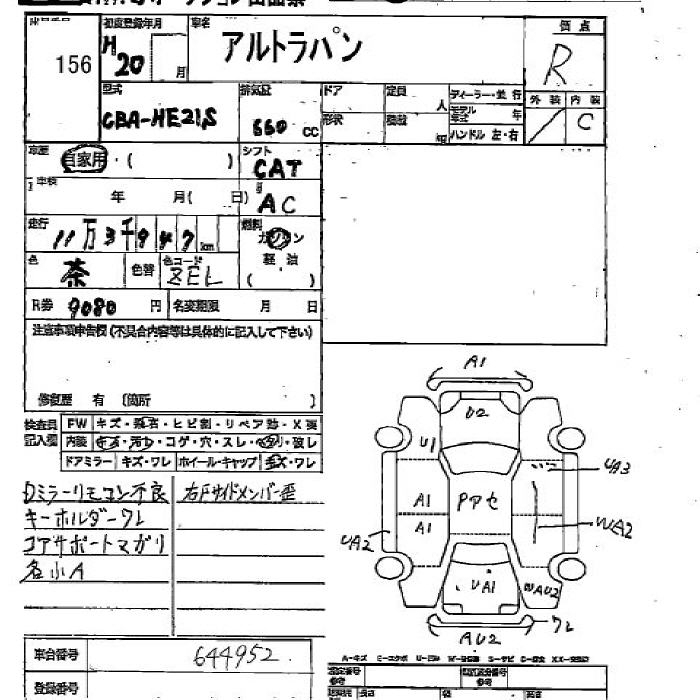 156
初度登録年月
H20
月
車名
アルトラパン
評価点
R
型式
CBA-HE21S
排気量
660 CC
ドア
形状
定員
人
積載
ディーラー・並行
モデル年式
年
ハンドル 左・右
外装
内装
C
車歴
自家用・( )
シフト
CAT
車検
年 月( 日)
AC
走行
11万3千947km
燃料
ガソリン
軽油
( )
色
茶
色替
色コード
ZEL
R券 9080 円
名変期限 月 日
注意事項申告欄(不具合内容等は具体的に記入して下さい)
修復歴 有 〔箇所 〕
検査員記入欄
FW キズ・飛石・ヒビ割・リペア跡・X要
内装 キズ・汚レ・コゲ・穴・スレ・ヘタリ・破レ
ドアミラー キズ・ワレ ホイール・キャップ キズ・ワレ
Dミラーリモコン不良
右Fサイドメンバー歪
キーホルダーワレ
コアサポートマガリ
各小A
車台番号
644952
登録番号
A1
U2
U1
UA3
A1
Pアセ
A1
WA2
UA2
UA1
WAU2
AU2
ワレ